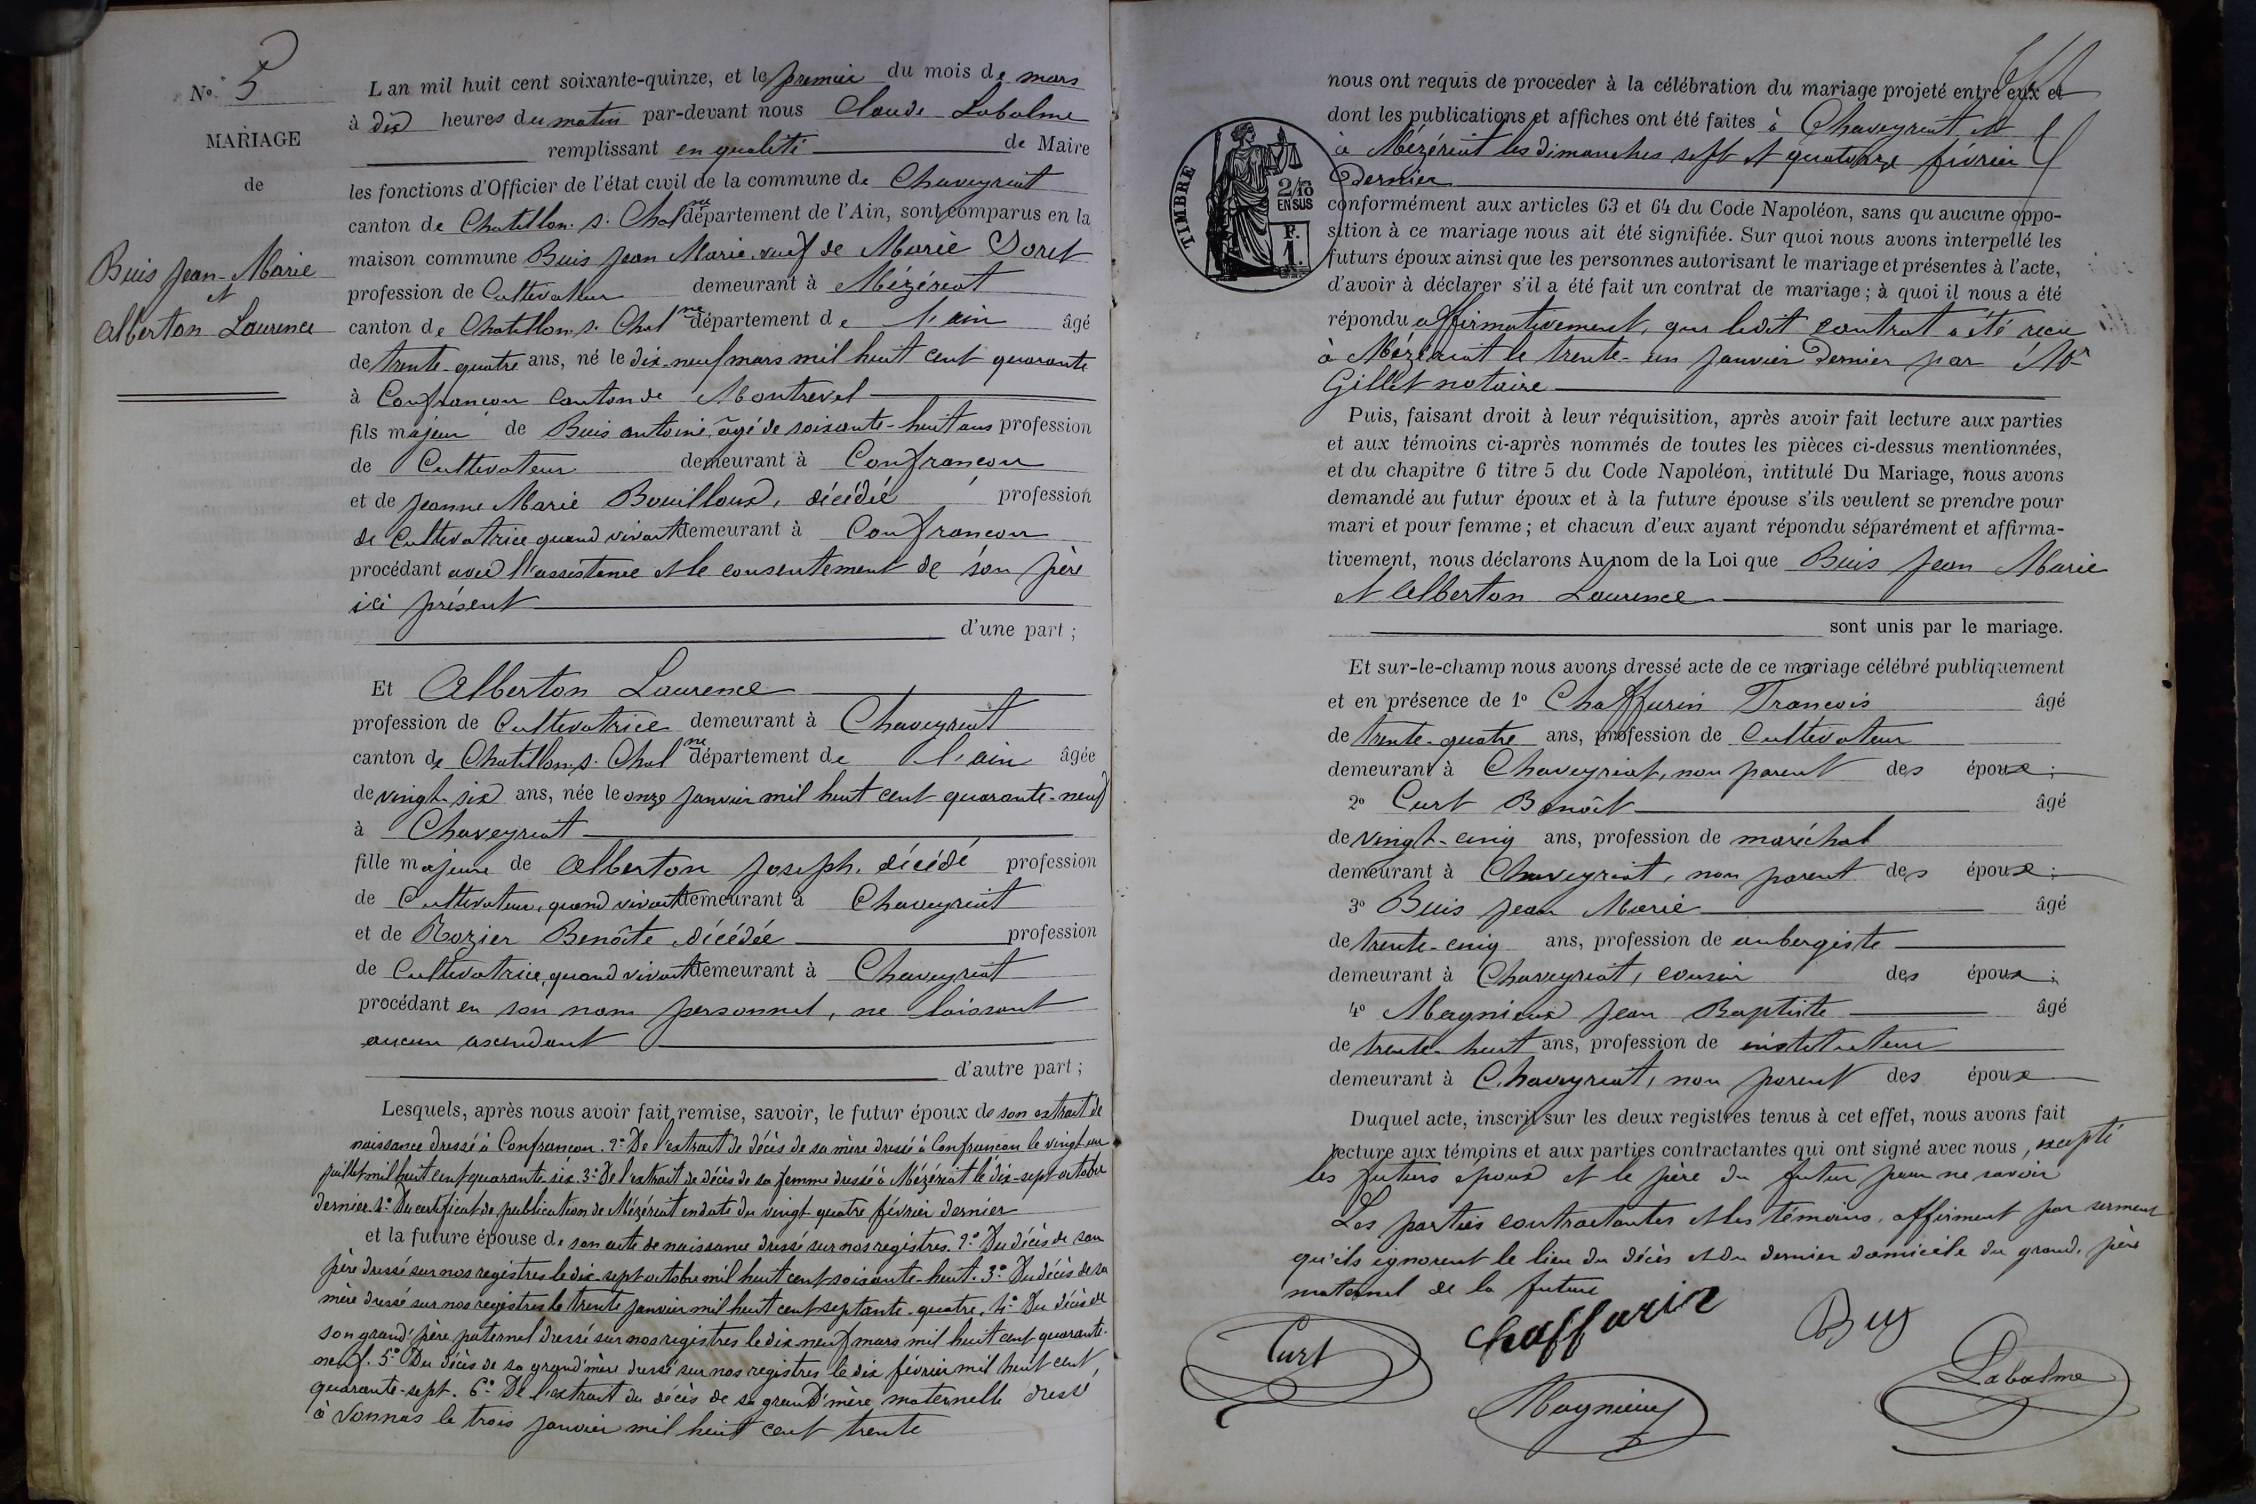 N° 5
MARIAGE
de
Buis Jean-Marie
et
Alberton Laurence
L'an mil huit cent soixante-quinze, et le premier du mois de mars
à dix heures du matin par-devant nous Claude Labalme
remplissant en qualité de Maire
les fonctions d'Officier de l'état civil de la commune de Chaveyriat
canton de Chatillon-s. Chal^ne département de l'Ain, sont comparus en la
maison commune Buis Jean Marie veuf de Marie Soret
profession de Cultivateur demeurant à Mézériat
canton de Chatillon s. Chal^ne département de l'ain âgé
de trente-quatre ans, né le dix-neuf mars mil huit cent quarante
à Confrançon canton de Montrevel
fils majeur de Buis antoine, âgé de soixante-huit ans profession
de Cultivateur demeurant à Confrançon
et de Jeanne Marie Bouilloux, décédée profession
de Cultivatrice quand vivait demeurant à Confrançon
procédant avec l'assistance et le consentement de son père
ici présent
d'une part ;
Et Alberton Laurence
profession de Cultivatrice demeurant à Chaveyriat
canton de Chatillon s. Chal^ne département de l'ain âgée
de vingt-six ans, née le onze janvier mil huit cent quarante-neuf
à Chaveyriat
fille majeure de Alberton Joseph, décédé profession
de Cultivateur, quand vivait demeurant à Chaveyriat
et de Rozier Benôite décédée profession
de Cultivatrice, quand vivait demeurant à Chaveyriat
procédant en son nom personnel, ne laissant
aucun ascendant
d'autre part ;
Lesquels, après nous avoir fait remise, savoir, le futur époux de son extrait de
naissance dressé à Confrançon. 2° De l'extrait de décès de sa mère dressé à Confrançon le vingt un
juillet mil huit cent quarante six. 3° De l'extrait de décès de sa femme dressé à Mézériat le dix-sept octobre
dernier. 4° Du certificat de publication de Mézériat en date du vingt quatre février dernier
et la future épouse de son acte de naissance dressé sur nos registres. 2° Du décès de son
père dressé sur nos registres le dix-sept octobre mil huit cent soixante-huit. 3° Du décès de sa
mère dressé sur nos registres le trente janvier mil huit cent septante-quatre. 4° Du décès de
son grand'père paternel dressé sur nos registres le dix neuf mars mil huit cent quarante-
neuf. 5° Du décès de sa grand'mère dressé sur nos registres le dix février mil huit cent
quarante-sept. 6° De l'extrait du décès de sa grand'mère maternelle dressé
à Vonnas le trois janvier mil huit cent trente
TIMBRE
2/10
EN SUS
F.
1.
nous ont requis de procéder à la célébration du mariage projeté entre eux et
dont les publications et affiches ont été faites à Chaveyriat et
à Mézériat les dimanches sept et quatorze février
dernier
conformément aux articles 63 et 64 du Code Napoléon, sans qu'aucune oppo-
sition à ce mariage nous ait été signifiée. Sur quoi nous avons interpellé les
futurs époux ainsi que les personnes autorisant le mariage et présentes à l'acte,
d'avoir à déclarer s'il a été fait un contrat de mariage ; à quoi il nous a été
répondu affirmativement, que ledit contrat a été reçu
à Mézériat le trente-un janvier dernier par M^e
Gillet notaire
Puis, faisant droit à leur réquisition, après avoir fait lecture aux parties
et aux témoins ci-après nommés de toutes les pièces ci-dessus mentionnées,
et du chapitre 6 titre 5 du Code Napoléon, intitulé Du Mariage, nous avons
demandé au futur époux et à la future épouse s'ils veulent se prendre pour
mari et pour femme ; et chacun d'eux ayant répondu séparément et affirma-
tivement, nous déclarons Au nom de la Loi que Buis Jean Marie
et Alberton Laurence
sont unis par le mariage.
Et sur-le-champ nous avons dressé acte de ce mariage célébré publiquement
et en présence de 1° Chaffurin François âgé
de trente-quatre ans, profession de Cultivateur
demeurant à Chaveyriat, non parent des époux ;
2° Curt Benôit âgé
de vingt-cinq ans, profession de maréchal
demeurant à Chaveyriat, non parent des époux ;
3° Buis Jean Marie âgé
de trente-cinq ans, profession de aubergiste
demeurant à Chaveyriat, cousin des époux ;
4° Magnieux Jean Baptiste âgé
de trente-huit ans, profession de instituteur
demeurant à Chaveyriat, non parent des époux
Duquel acte, inscrit sur les deux registres tenus à cet effet, nous avons fait
lecture aux témoins et aux parties contractantes qui ont signé avec nous, excepté
les futurs époux et le père du futur pour ne savoir
Les parties contractantes et les témoins, affirment par serment
qu'ils ignorent le lieu du décès et du dernier domicile du grand, père
maternel de la future
Curt Chaffurin Buy
Magnieux Labalme